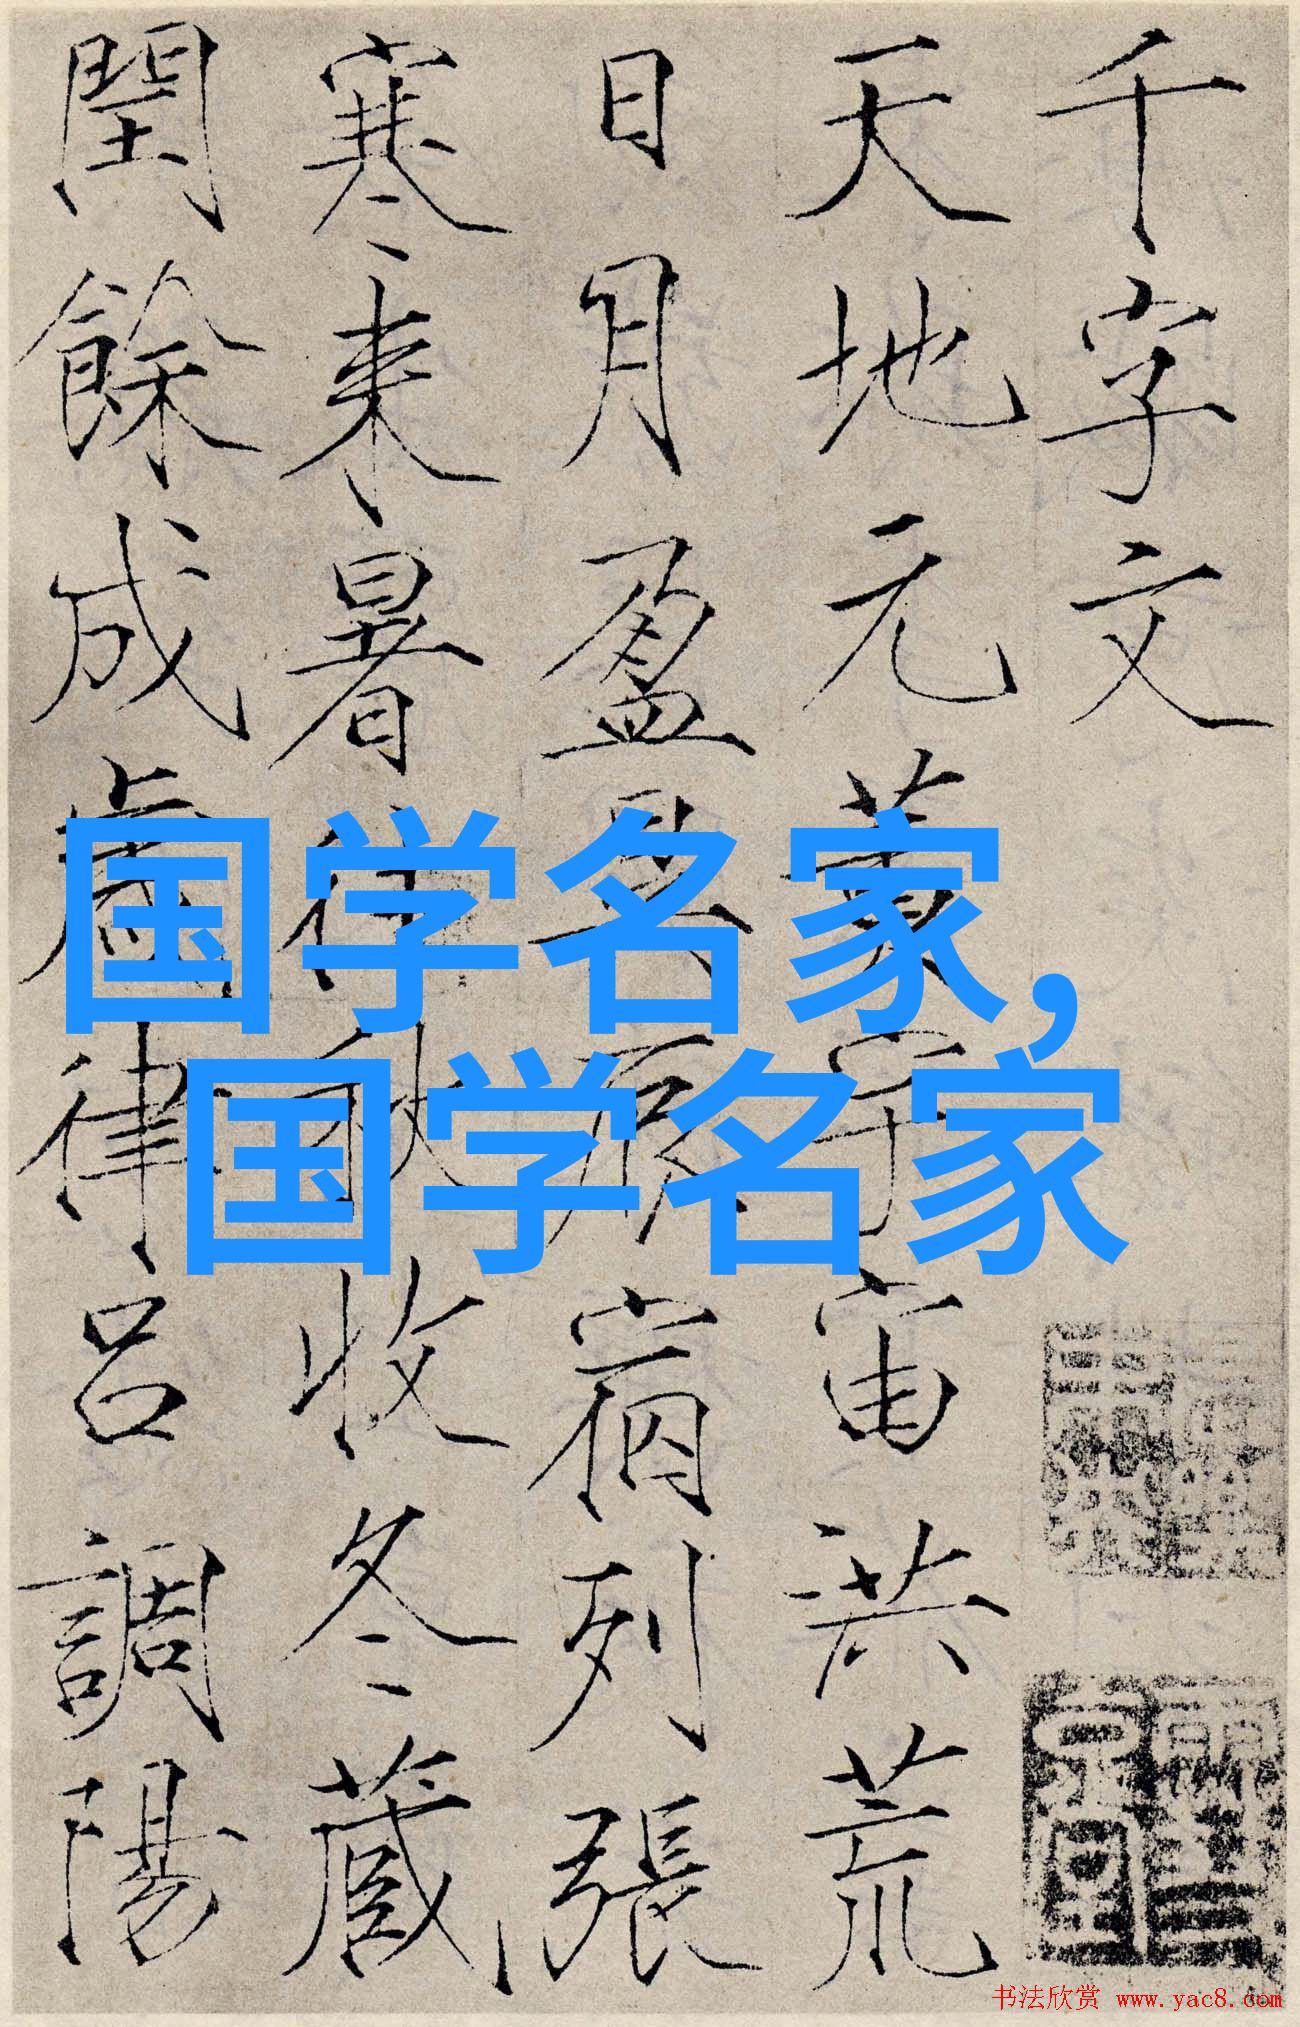 千字文
天地元黃宇宙洪荒
日月盈昃辰宿列張
寒来暑往秋收冬蔵
閏餘成歲律呂調陽
国学名家,
国学名家
书法欣赏 www.yac8.com